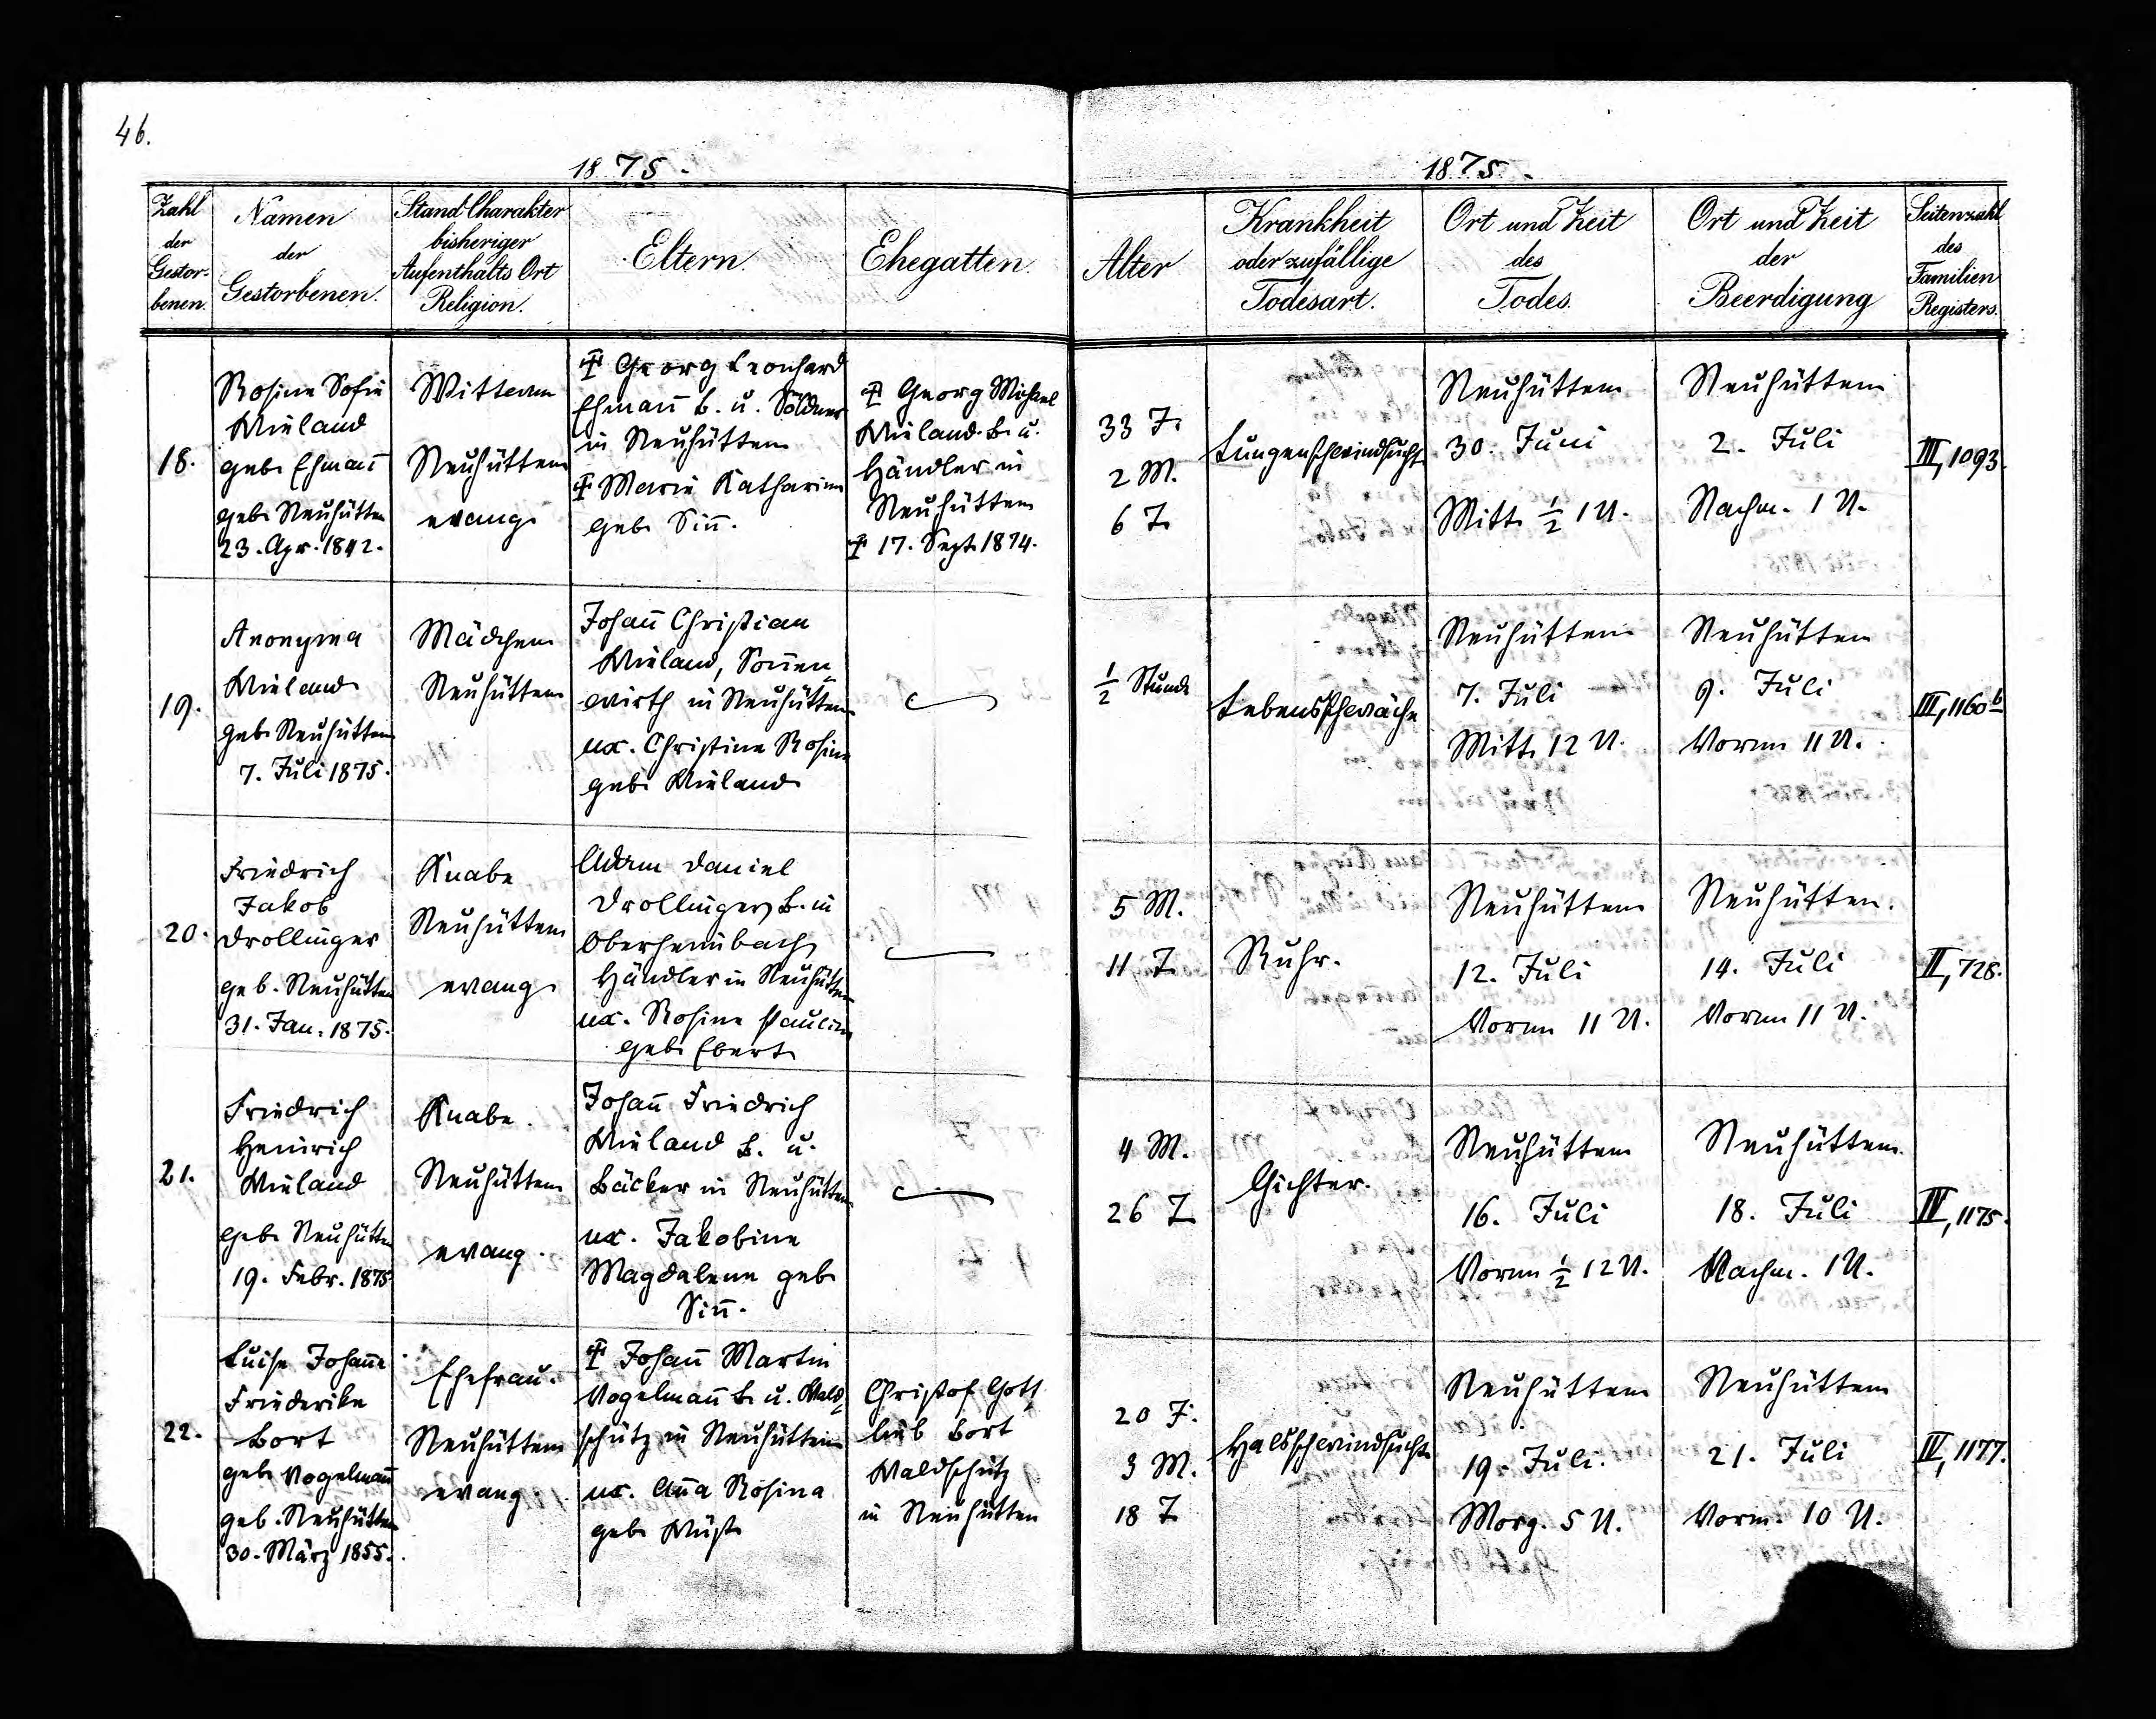 46.
1875.
Zahl
der
Gestor-
benen.
Namen
der
Gestorbenen.
Stand Charakter
bisheriger
Aufenthalts Ort
Religion.
Eltern.
Ehegatten.
18.
Rosine Sofie
Wieland
geb. Ehmañ
geb. Neuhütten
23. Apr. 1842.
Wittwe
Neuhütten
evang.
† Georg Leonhard
Ehmañ B. u. Söldner
in Neuhütten
† Marie Katharine
geb. Siñ.
† Georg Michael
Wieland B. u.
Händler in
Neuhütten
† 17. Sept. 1874.
19.
Anonyma
Wieland
geb. Neuhütten
7. Juli 1875.
Mädchen
Neuhütten
Johañ Christian
Wieland, Soñen-
wirth in Neuhütten
ux. Christine Rosine
geb. Wieland
20.
Friedrich
Jakob
Drollinger
geb. Neuhütten
31. Jan. 1875.
Knabe
Neuhütten
evang.
Adam Daniel
Drollinger, B. in
Oberheimbach,
Händler in Neuhütten
ux. Rosine Pauline
geb. Ebert
21.
Friedrich
Heinrich
Wieland
geb. Neuhütten
19. Febr. 1875
Knabe.
Neuhütten
evang.
Johañ Friedrich
Wieland B. u.
Bäcker in Neuhütten
ux. Jakobine
Magdalene geb.
Siñ.
22.
Luise Johañe
Friederike
Bort
geb. Vogelmañ
geb. Neuhütten
30. März 1855.
Ehefrau.
Neuhütten
evang.
† Johañ Martin
Vogelmañ B. u. Wald-
schütz in Neuhütten
ux. Aña Rosina
geb. Wüst
Christof Gott-
lieb Bort
Waldschütz
in Neuhütten
1875.
Alter
Krankheit
oder zufällige
Todesart.
Ort und Zeit
des
Todes.
Ort und Zeit
der
Beerdigung
Seitenzahl
des
Familien
Registers.
33 J.
2 M.
6 T.
Lungenschwindsucht
Neuhütten
30. Juni
Mitt. ½ 1 U.
Neuhütten
2. Juli
Nachm. 1 U.
III, 1093.
½ Stunde
Lebensschwäche
Neuhütten
7. Juli
Mitt. 12 U.
Neuhütten
9. Juli
Vorm. 11 U.
III, 1160 b
5 M.
11 T.
Ruhr.
Neuhütten
12. Juli
Vorm. 11 U.
Neuhütten.
14. Juli
Vorm. 11 U.
II, 728.
4 M.
26 T.
Gichter.
Neuhütten
16. Juli
Vorm. ½ 12 U.
Neuhütten.
18. Juli
Nachm. 1 U.
IV, 1175.
20 J.
3 M.
18 T.
Halsschwindsucht
Neuhütten
19. Juli.
Morg. 5 U.
Neuhütten
21. Juli
Vorm. 10 U.
IV, 1177.